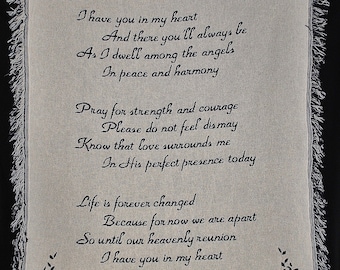 I have you in my heart
And there you'll always be
As I dwell among the angels
In peace and harmony
Pray for strength and courage
Please do not feel dismay
Know that love surrounds me
In His perfect presence today
Life is forever changed
Because for now we are apart
So until our heavenly reunion
I have you in my heart